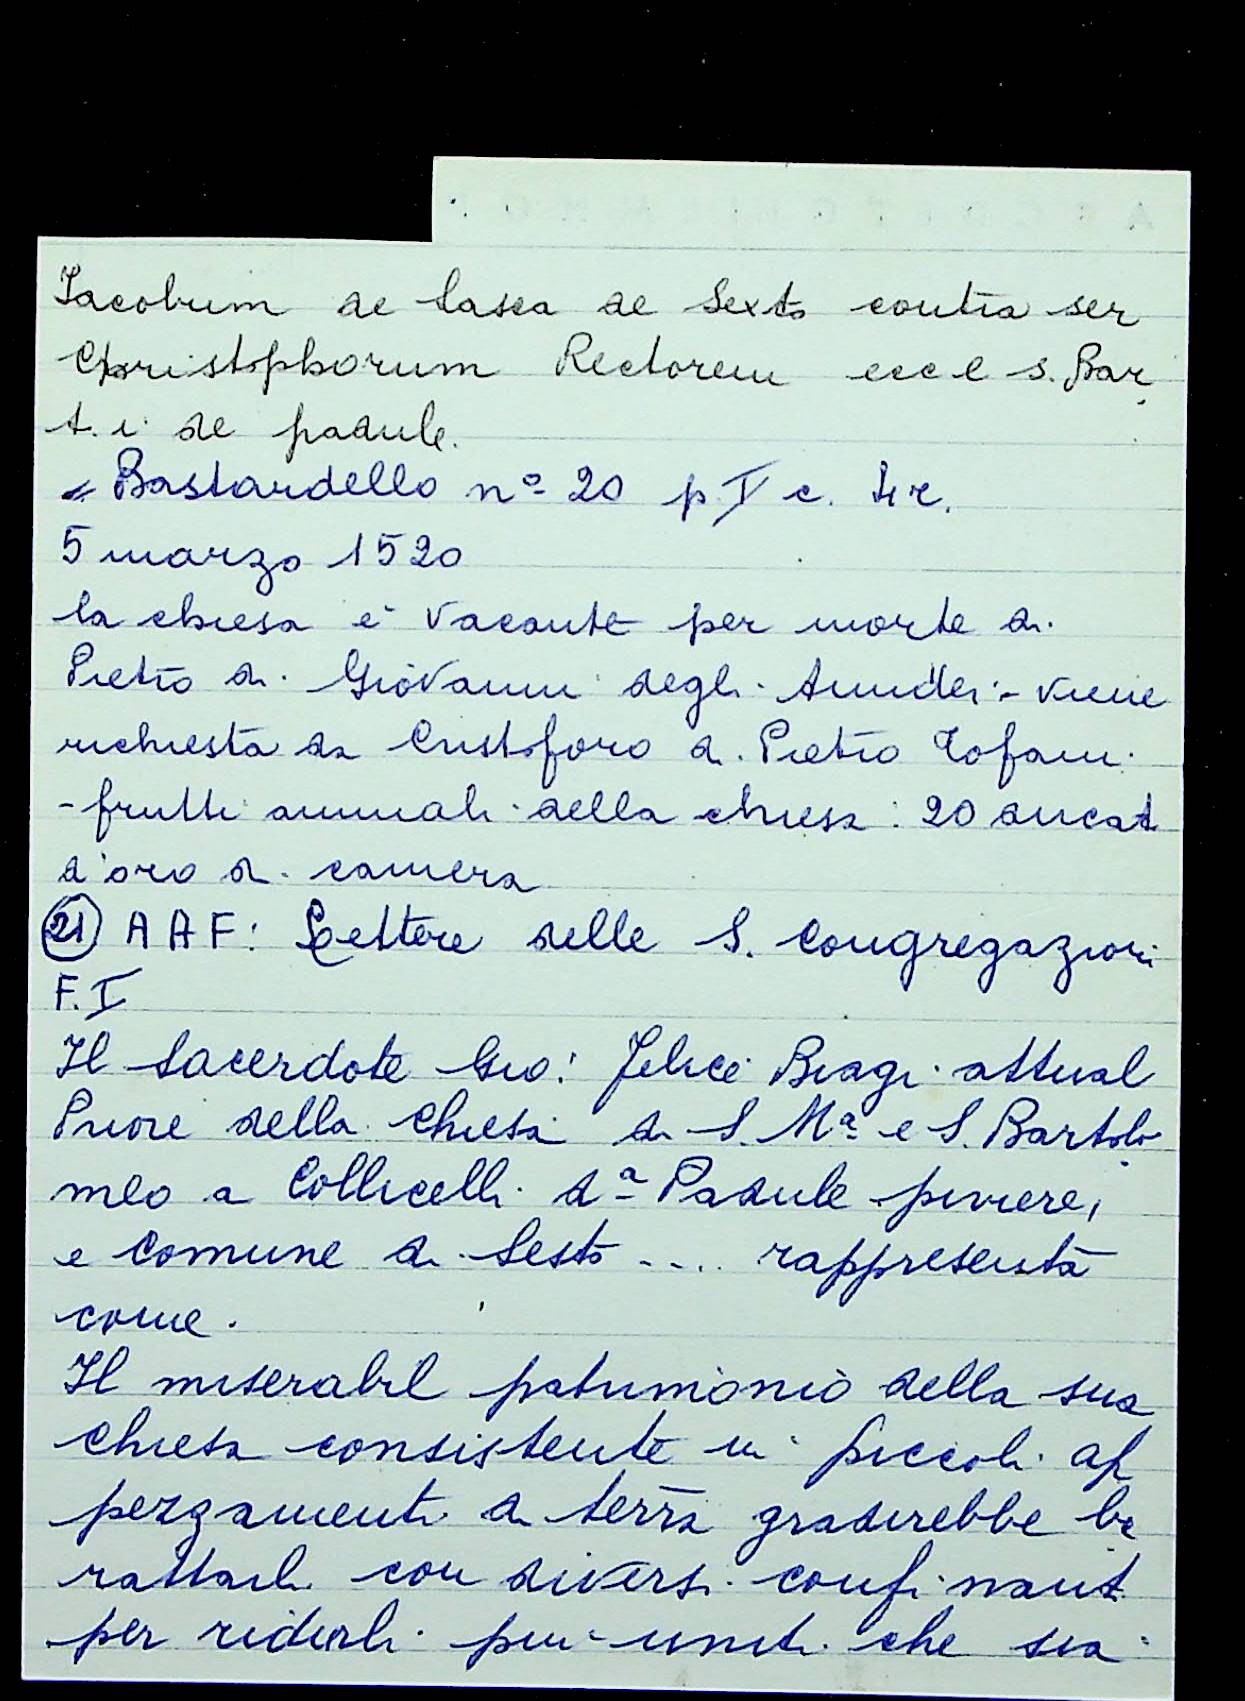 Iacobum de Sasca de Sexto contra ser
Christophorum Rectorem eccl s. Bar
t. i. de padule.
" Bastardello nº 20 p I c. 4r.
5 marzo 1520
la chiesa è vacante per morte di
Pietro di Giovanni degli - viene
richiesta da Cristoforo di Pietro Tofani
- frutti annuali della chiesa : 20 ducat
d'oro di camera
21 AAF: Lettere delle S. Congregazioni
F. I
Il Sacerdote Gio: Felice Biagi attual
Priore della Chiesa di S. Mª e S. Bartolo
meo a Collicelli dª Padule piviere,
e Comune di Sesto .... rappresenta
come.
Il miserabil patrimonio della sua
Chiesa consistente in piccoli ap
pezzamenti di terra gradirebbe ba
rattarli con diversi confinant
per ridurli più uniti che sia